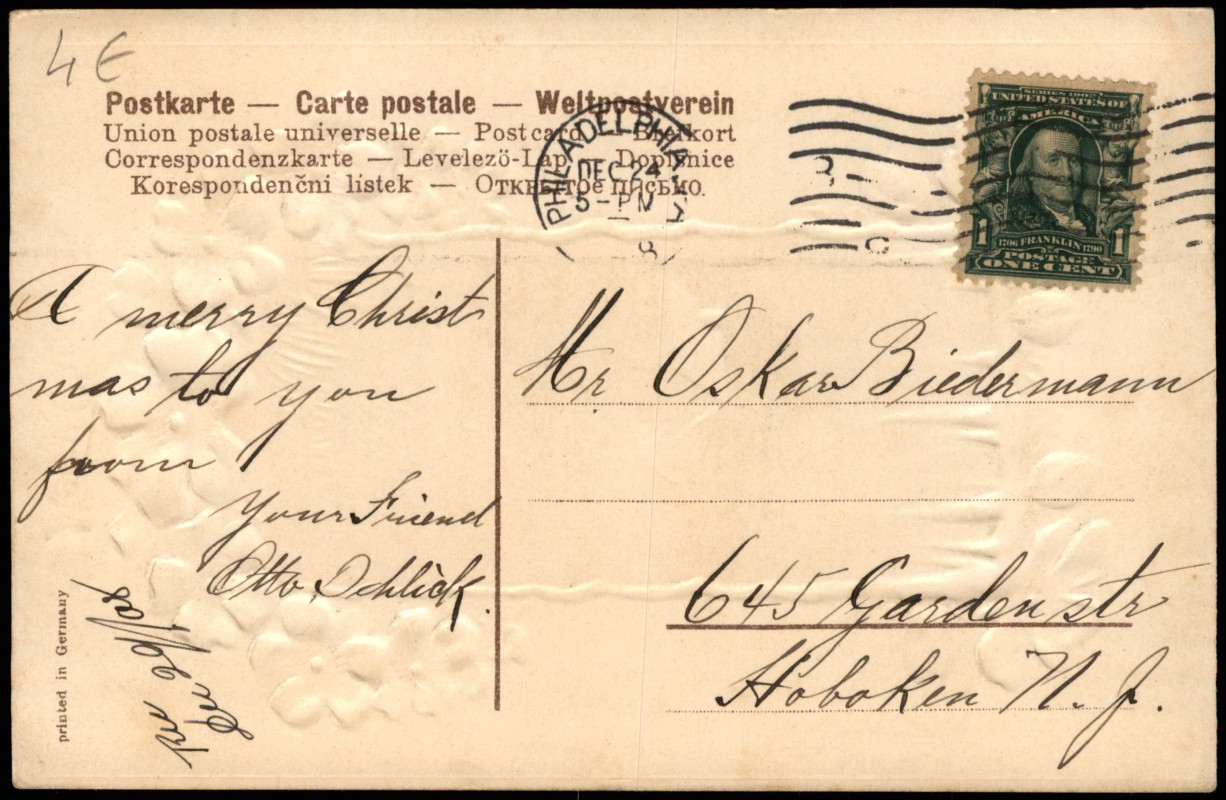 4 €
Postkarte — Carte postale — Weltpostverein
Union postale universelle — Postcard — Brefkort
Correspondenzkarte — Levelezö-Lap — Dopisnice
Korespondenční lístek — Открытое письмо.
PHILADELPHIA
DEC 24
5-PM
8
SERIES 1902
UNITED STATES OF
AMERICA
1 1
1706 FRANKLIN 1790
POSTAGE
ONE CENT
A merry Christ
mas to you
from
your Friend
Otto Schlick.
Mr Oskar Biedermann
645 Garden str
Hoboken N. J.
printed in Germany